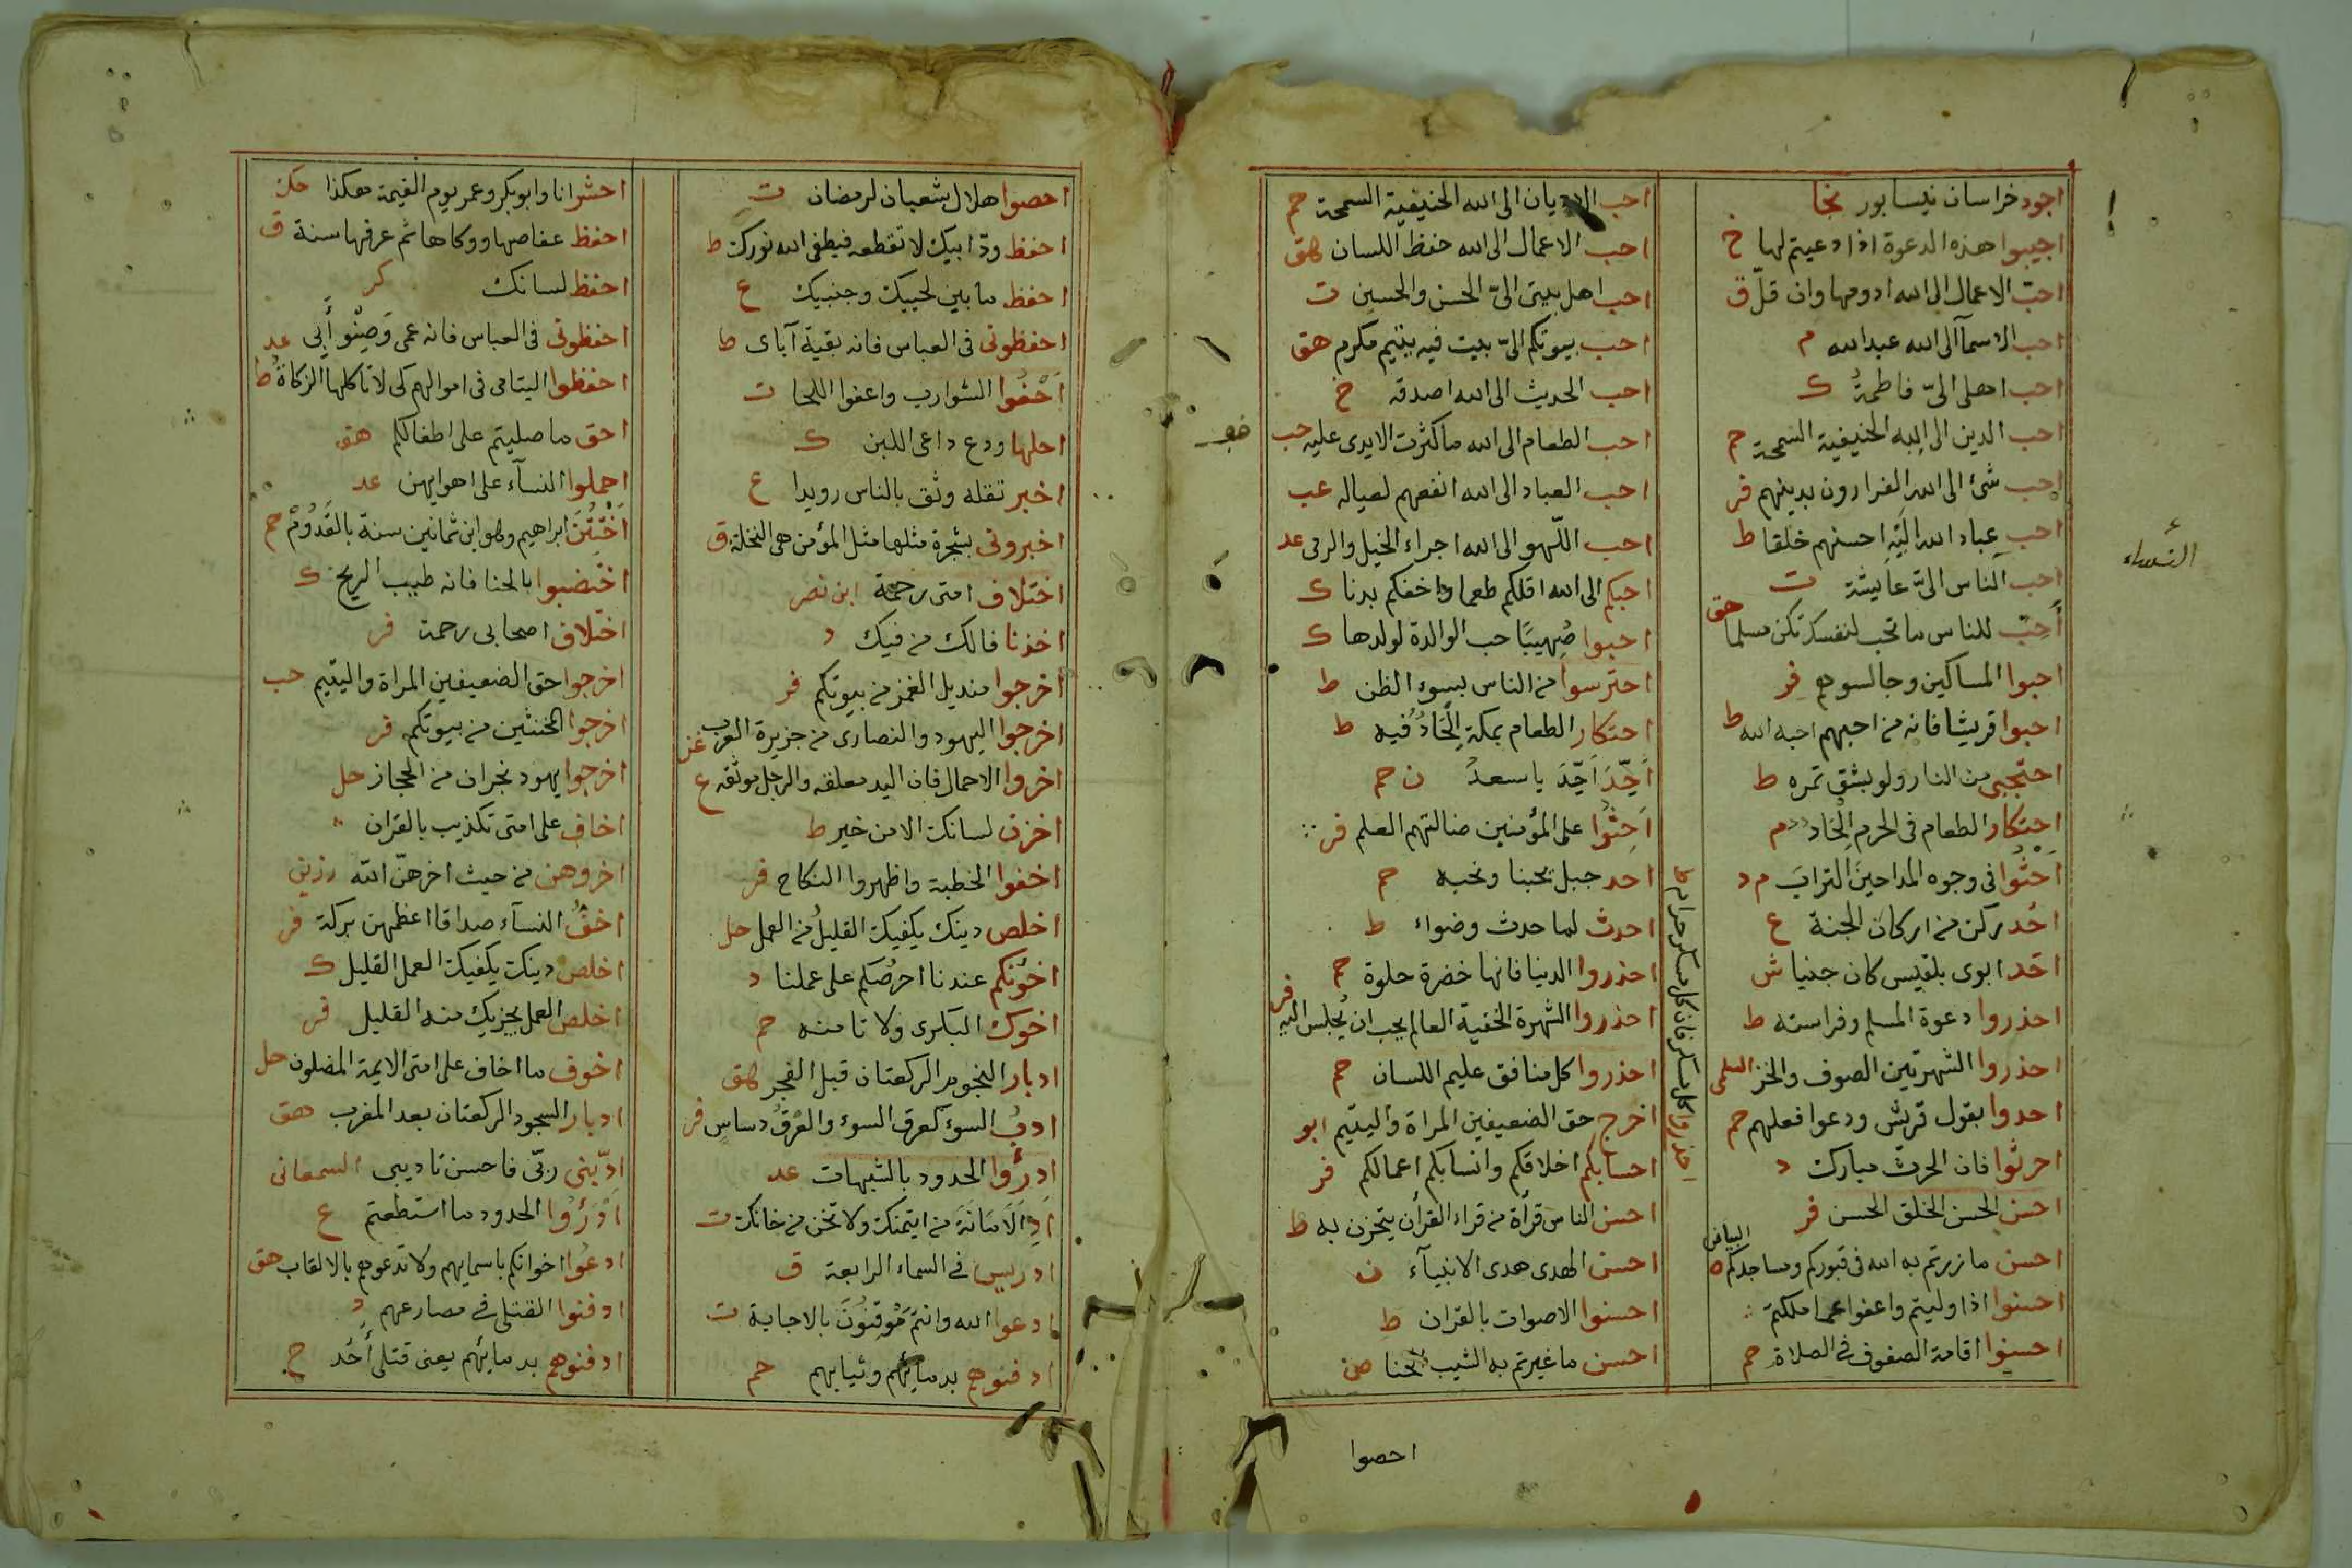 اجود خراسان نيسابور نجا
اجيبوا هذه الدعوة اذا دعيتم لها خ
احبّ الاعمال الى الله ادومها وان قلّ ق
احب الاسمآ الى الله عبد الله م
احب اهلى الىّ فاطمة ك
احب الدين الى الله الحنيفية السمحة حم
احب شئ الى الله الغرارون بدينهم فر
احب عباد الله اليه احسنهم خلقا ط
احب الناس الىّ عايشة ت
أَحِبّ للناس ما تحب لنفسك تكن مسلما حق
احبوا المساكين وجالسوهم فر
احبوا قريشا فانه من احبهم احبه الله ط
احتجبى من النار ولو بشق تمره ط
احتكار الطعام فى الحرم الحاد د م
احثوا فى وجوه المداحين التراب م د
احد ركن من اركان الجنة ع
احد ابوى بلقيس كان جنيا ش
احذروا دعوة المسلم وفراسته ط
احذروا الشهرتين الصوف والخز السلمى
احدوا بقول قريش ودعوا فعلهم حم
احرثوا فان الحرث مبارك د
احسن الحسن الخلق الحسن فر
احسن ما زرتم به الله فى قبوركم ومساجدكم البياض ه
احسنوا اذا وليتم واعفوا عما ملكتم
احسنوا اقامة الصفوف فى الصلاة حم
احب الاديان الى الله الحنيفية السمحة حم
احب الاعمال الى الله حفظ اللسان هق
احب اهل بيتى الىّ الحسن والحسين ت
احب بيوتكم الىّ بيت فيه يتيم مكرم هق
احب الحديث الى الله اصدقه خ
احب الطعام الى الله ما كثرت الايدى عليه حب
احب العباد الى الله انفعهم لعياله عب
احب اللّهو الى الله اجراء الخيل والرمى عد
احبكم الى الله اقلكم طعما واخفكم بدنا ك
احبوا صُهيبًا حب الوالدة لولدها ك
احترسوا من الناس بسوء الظن ط
احتكار الطعام بمكة الحاد فيه ط
اَحِّدَ اَحِّدَ يا سعد ن حم
احثوا على المؤمنين ضالتهم العلم فر
احد جبل يحبنا ونحبه حم
احدث لما حدث وضواء ط
احذروا الدنيا فانها خضرة حلوة حم
احذروا الشهرة الخفية العالم يحب ان يُجلس اليه فر
احذروا كل منافق عليم اللسان حم
اخرج حق الضعيفين المراة واليتيم ابو
احسابكم اخلاقكم وانسابكم اعمالكم فر
احسن الناس قرأة من قراء القرأن يتحزن به ط
احسن الهدى هدى الانبيآء ن
احسنوا الاصوات بالقران ط
احسن ما غيرتم به الشيب الحنا ص
احذروا كل مسكر فان كل مسكر حرام ط
النساء
احصوا
احصوا هلال شعبان لرمضان ت
احفظ ودّ ابيك لا تقطعه فيطفى الله نورك ط
احفظ ما بين لحييك وجنبيك ع
احفظونى فى العباس فانه بقية آباى ط
اَحْفُوا الشوارب واعفوا اللحا ت
احلبها ودع داعى اللبن ك
اخبر تقله وثق بالناس رويدا ع
اخبرونى بشجرة مثلها مثل المؤمن هى النخلة ق
اختلاف امتى رحمة ابن نصر
اخذنا فالك من فيك د
اخرجوا منديل الغمز من بيوتكم فر
اخرجوا اليهود والنصارى من جزيرة العرب
اخروا الاحمال فان اليد معلقه والرجل موثقه ع
اخزن لسانك الا من خير ط
اخفوا الخطبة واظهروا النكاح فر
اخلص دينك يكفيك القليل من العمل حل
اخونكم عندنا احرصكم على عملنا د
اخوك البكرى ولا تامنه حم
ادبار النجوم الركعتان قبل الفجر هق
ادبُ السوءَ كعرق السوءِ والعرق دساس فر
ادرؤا الحدود بالشبهات عد
اَدِّ الاَمَانَةَ من ايتمنك ولا تخن من خانك ت
ادريس فى السماء الرابعة ق
ادعوا الله وانتم مُوْقِنُوْنَ بالاجابة ت
ادفنوهم بدمايهم وثيابهم حم
احشر انا وابو بكر وعمر يوم القيمة هكذا حك
احفظ عفاصها ووكاها ثم عرفها سنة ق
احفظ لسانك كر
احفظونى فى العباس فانه عمى وَصِنْو أَبى عد
احفظوا اليتامى فى اموالهم كى لا تاكلها الزكاة ط
احق ما صليتم على اطفالكم هق
احملوا النسآء على اهوايهن عد
اُخْتُتِنَ ابراهيم وهو ابن ثمانين سنة بالقَدُوْم حم
اختضبوا بالحنا فانه طيب الريح ك
اختلاف اصحابى رحمة فر
اخرجوا حق الضعيفين المراة واليتيم حب
اخرجوا المخنثين من بيوتكم فر
اخرجوا يهود نجران من الحجاز حل
اخاف على امتى تكذيب بالقران
اخروهن من حيث اخرهنّ الله رزين
اخفُّ النسآء صداقا اعظمهن بركة فر
اخلص دينك يكفيك العمل القليل ك
اخلص العمل يجزيك منه القليل فر
اخوف ما اخاف على امتى الايمة المضلون حل
ادبار السجود الركعتان بعد المغرب هق
ادّبنى ربّى فاحسن تاديبى السمعانى
اَدْرَؤُوا الحدود ما استطعتم ع
ادعُوا اخوانكم باسمايهم ولا تدعوهم بالالقاب حق
ادفنوا القتلى فى مصارعهم د
ادفنوهم بدمايهم يعنى قتلى أُحُد خ